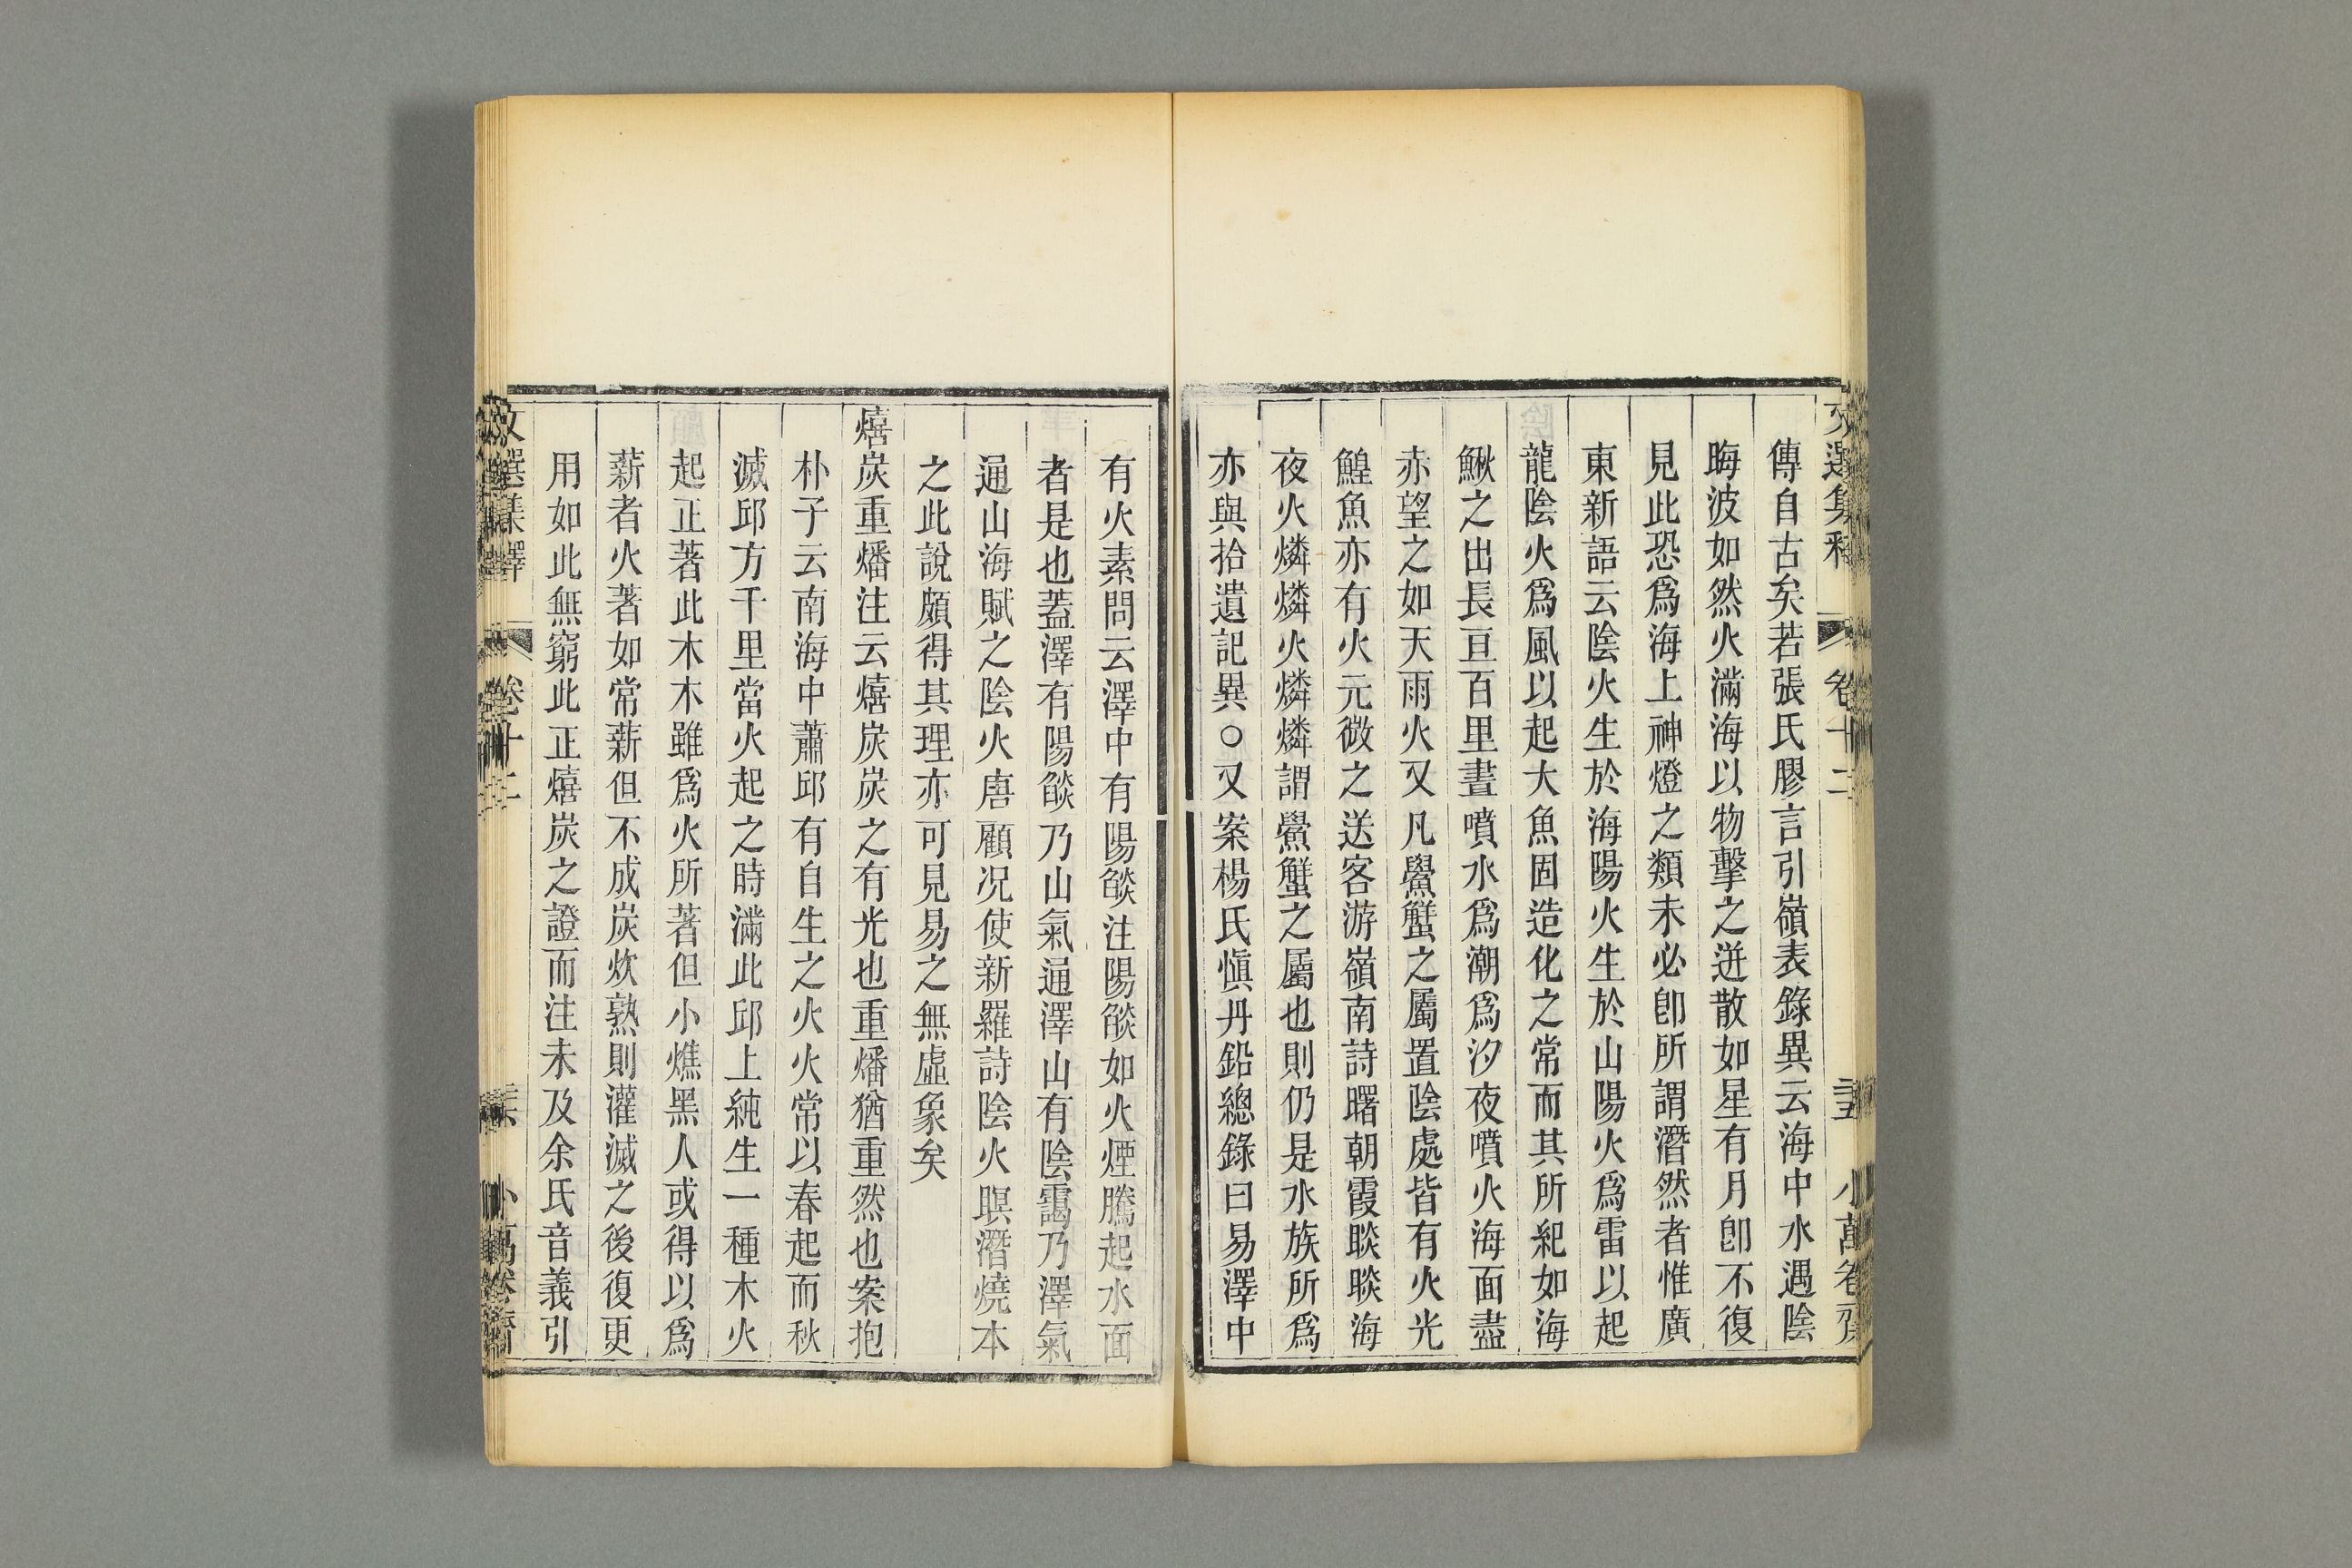 文選集釋 卷十二 三五 小萬卷齋
傳自古矣若張氏膠言引嶺表錄異云海中水遇陰
晦波如然火滿海以物擊之迸散如星有月卽不復
見此恐爲海上神燈之類未必卽所謂潛然者惟廣
東新語云陰火生於海陽火生於山陽火爲雷以起
龍陰火爲風以起大魚固造化之常而其所紀如海
鰍之出長亘百里晝噴水爲潮爲汐夜噴火海面盡
赤望之如天雨火又凡鱟蟹之屬置陰處皆有火光
鰉魚亦有火元微之送客游嶺南詩曙朝霞睒睒海
夜火燐燐火燐燐謂鱟蟹之屬也則仍是水族所爲
亦與拾遺記異○又案楊氏愼丹鉛總錄曰易澤中
有火素問云澤中有陽燄注陽燄如火煙騰起水面
者是也蓋澤有陽燄乃山氣通澤山有陰靄乃澤氣
通山海賦之陰火唐顧况使新羅詩陰火暝潛燒本
之此說頗得其理亦可見易之無虛象矣
熺炭重燔注云熺炭炭之有光也重燔猶重然也案抱
朴子云南海中蕭邱有自生之火火常以春起而秋
滅邱方千里當火起之時滿此邱上純生一種木火
起正著此木木雖爲火所著但小燋黑人或得以爲
薪者火著如常薪但不成炭炊熟則灌滅之後復更
用如此無窮此正熺炭之證而注未及余氏音義引
文選集釋 卷十二